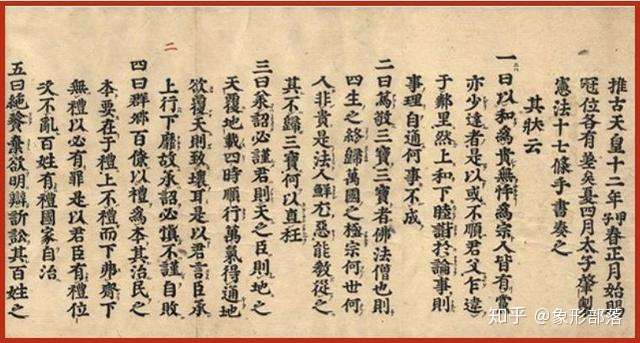 推古天皇十二年甲子春正月始
冠位各有差矣夏四月太子肇制
憲法十七條手書奏之
其狀云
一曰以和為貴無忤為宗人皆有黨
亦少達者是以或不順君父乍違
于鄰里然上和下睦諧於論事則
事理自通何事不成
二曰篤敬三寶三寶者佛法僧也則
四生之終歸萬國之極宗何世何
人非貴是法人鮮尤惡能教從之
其不歸三寶何以直枉
三曰承詔必謹君則天之臣則地之
天覆地載四時順行萬氣得通地
欲覆天則致壞耳是以君言臣承
上行下靡故承詔必慎不謹自敗
二
四曰群卿百僚以禮為本其治民之
本要在于禮上不禮而下弗齊下
無禮以必有罪是以君臣有禮位
次不亂百姓有禮國家自治
五曰絕餮棄欲明辯訴訟其百姓之
知乎 @象形部落